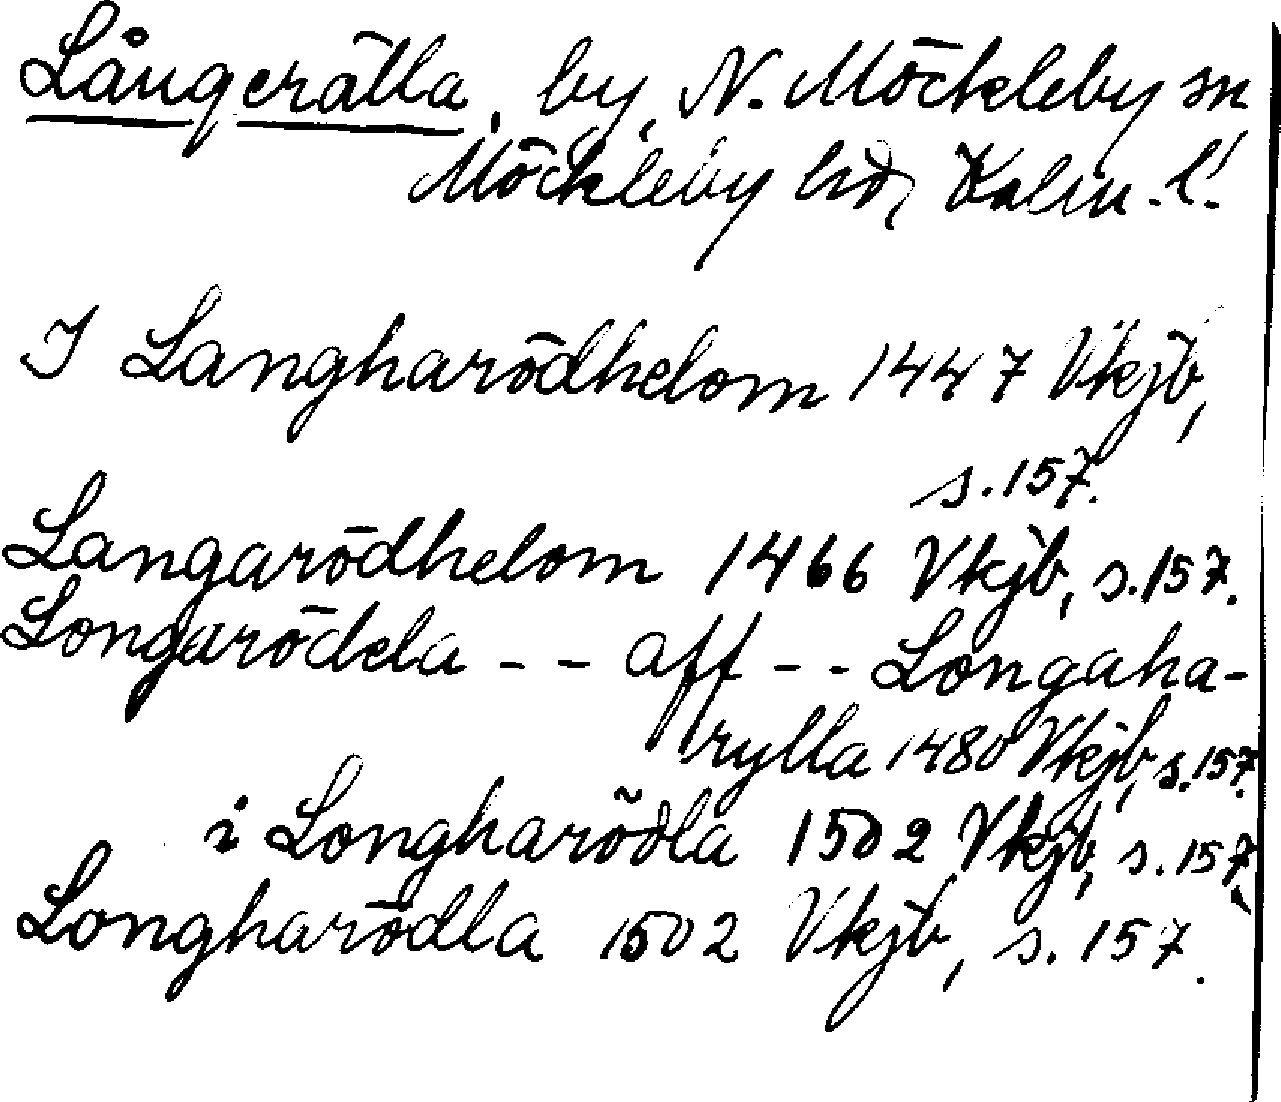 Långerälla, by, N. Möckleby sn
Möckleby hd, Kalm. l.
I Langharödhelom 1447 Vkjb,
s. 157.
Langarödhelom 1466 Vkjb, s. 157.
Longarödela - - aff - - Longaha-
rylla 1480 Vkjb, s. 157.
i Longharödla 1502 Vkjb, s. 157.
Longharödla 1502 Vkjb, s. 157.